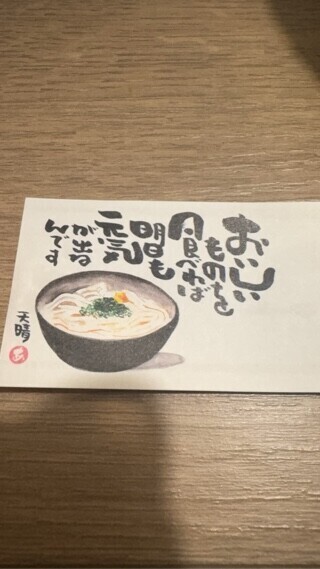 おいしい
ものを
食べれば
明日も
元気
が出る
んです
天晴